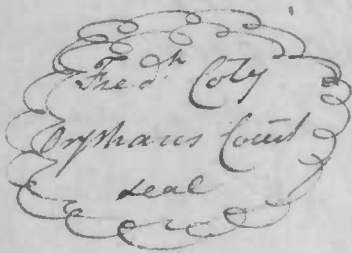 Fredk Coty
Orphans Court
seal